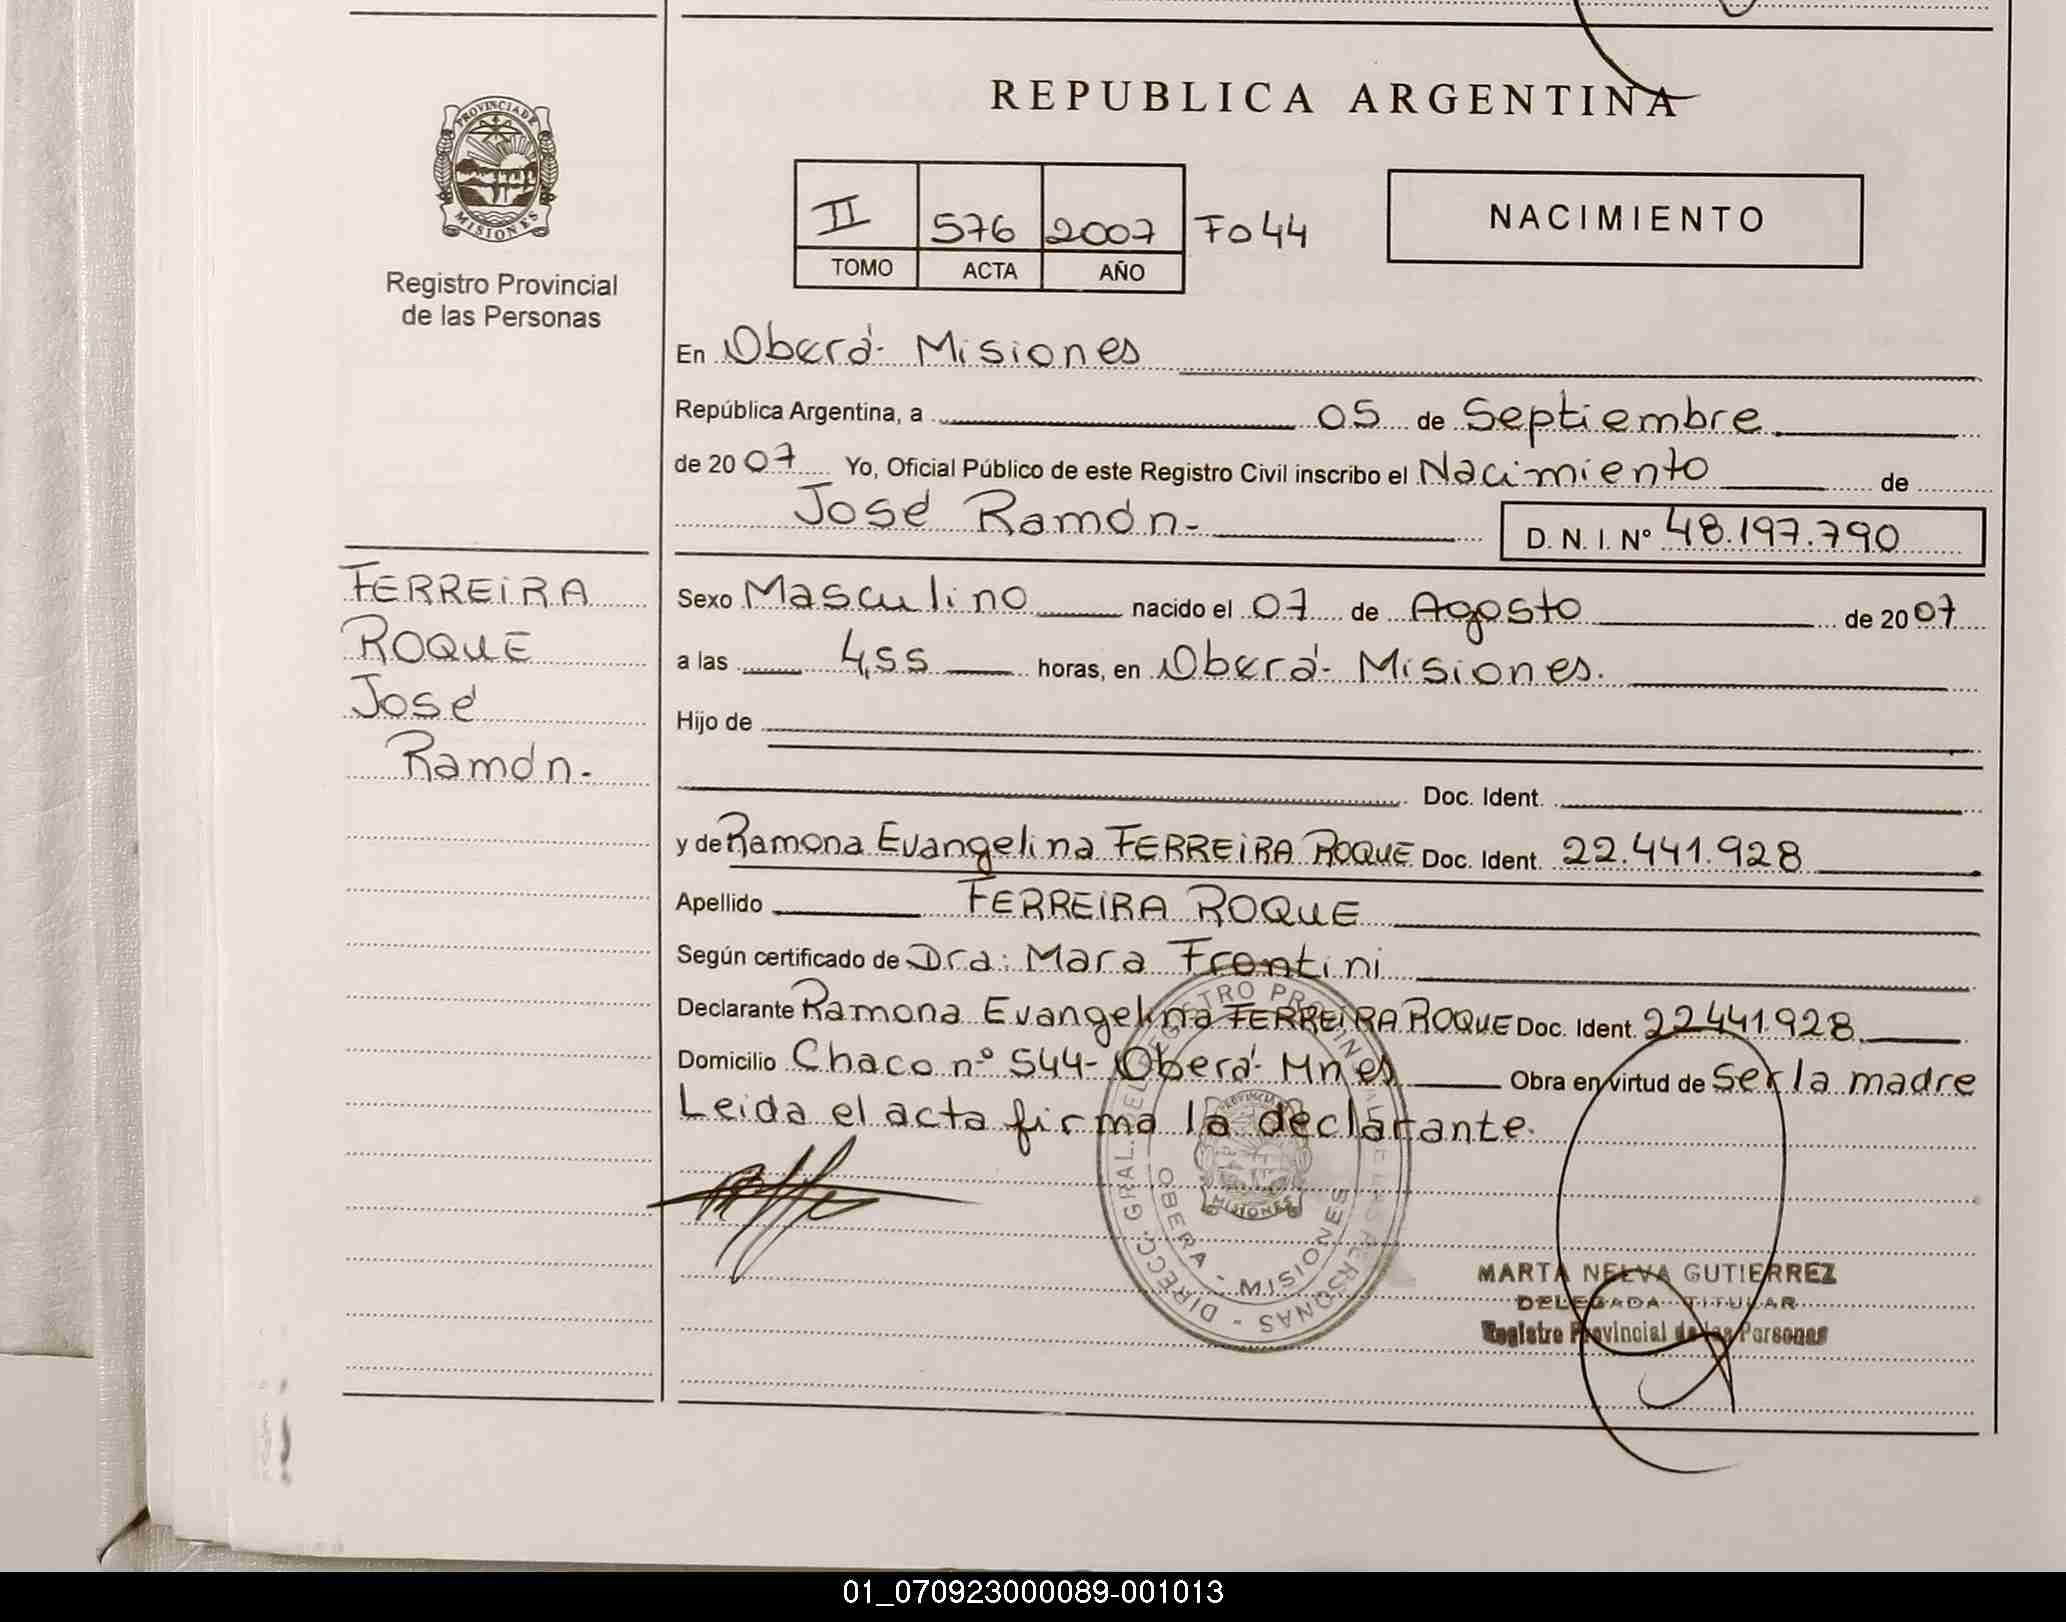 REPUBLICA ARGENTINA
PROVINCIA DE
MISIONES
Registro Provincial
de las Personas
II 576 2007 Fo 44
TOMO ACTA AÑO
NACIMIENTO
En Oberá- Misiones
República Argentina, a 05 de Septiembre
de 20 07 Yo, Oficial Público de este Registro Civil inscribo el Nacimiento de
José Ramón.- D. N. I. Nº 48.197.790
FERREIRA
ROQUE
José
Ramón.-
Sexo Masculino nacido el 07 de Agosto de 20 07
a las 4,55 horas, en Oberá- Misiones.
Hijo de
Doc. Ident.
y de Ramona Evangelina FERREIRA ROQUE Doc. Ident. 22.441.928
Apellido FERREIRA ROQUE
Según certificado de Dra: Mara Frontini
Declarante Ramona Evangelina FERREIRA ROQUE Doc. Ident. 22.441.928
Domicilio Chaco nº 544- Oberá- Mnes Obra en virtud de ser la madre
Leida el acta firma la declarante.
DIRECC. GRAL. DEL REGISTRO PROVINCIAL DE LAS PERSONAS -
OBERA - MISIONES
PROVINCIA
MISIONES
MARTA NELVA GUTIERREZ
DELEGADA TITULAR
Registro Provincial de las Personas
01_070923000089-001013